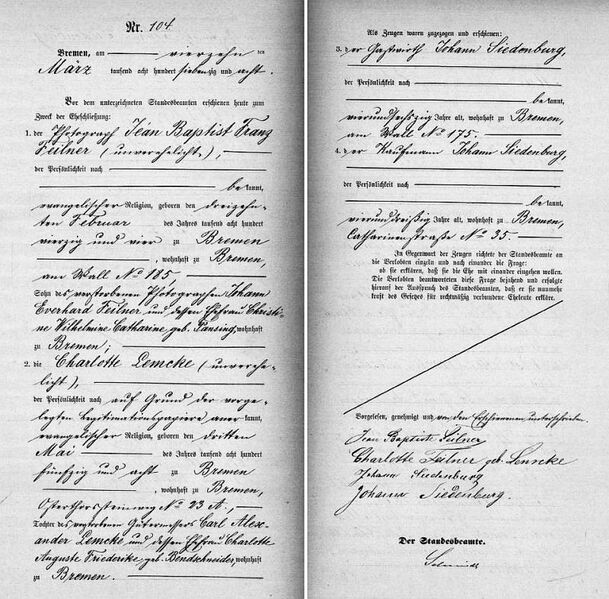 Nr. 104.
Bremen, am vierzehn ten
März tausend acht hundert siebenzig und acht.
Vor dem unterzeichneten Standesbeamten erschienen heute zum
Zweck der Eheschließung:
1. der Photograph Jean Baptist Franz
Feilner (unverehelicht.),
der Persönlichkeit nach
be kannt,
evangelischer Religion, geboren den dreizehn-
ten Februar des Jahres tausend acht hundert
vierzig und vier zu Bremen
, wohnhaft zu Bremen,
am Wall No 185,
Sohn des verstorbenen Photographen Johann
Everhard Feilner und dessen Ehefrau Christi-
ne Wilhelmine Catharine geb. Lansing, wohnhaft
zu Bremen;
2. die Charlotte Lemcke (unverehe-
licht),
der Persönlichkeit nach auf Grund der vorge-
legten Legitimationspapiere aner kannt,
evangelischer Religion, geboren den dritten
Mai des Jahres tausend acht hundert
fünfzig und acht zu Bremen
, wohnhaft zu Bremen,
Osterthorssteinweg No 23 A,
Tochter des verstorbenen Gütermessers Carl Alex-
ander Lemcke und dessen Ehefrau Charlotte
Auguste Friederike, geb. Bendschneider, wohnhaft
zu Bremen.
Als Zeugen waren zugezogen und erschienen:
3. der Gastwirth Johann Siedenburg,
der Persönlichkeit nach
be kannt,
vierundsechszig Jahre alt, wohnhaft zu Bremen,
am Wall No 175.
4. der Kaufmann Johann Siedenburg,
der Persönlichkeit nach
be kannt,
vierunddreißig Jahre alt, wohnhaft zu Bremen,
Catharinenstraße No 35.
In Gegenwart der Zeugen richtete der Standesbeamte an
die Verlobten einzeln und nach einander die Frage:
ob sie erklären, daß sie die Ehe mit einander eingehen wollen.
Die Verlobten beantworteten diese Frage bejahend und erfolgte
hierauf der Ausspruch des Standesbeamten, daß er sie nunmehr
kraft des Gesetzes für rechtmäßig verbundene Eheleute erkläre.
Vorgelesen, genehmigt und von den Erschienenen unterschrieben
Jean Baptiste Feilner
Charlotte Feilner geb. Lemcke
Johann Siedenburg
Johann Siedenburg.
Der Standesbeamte.